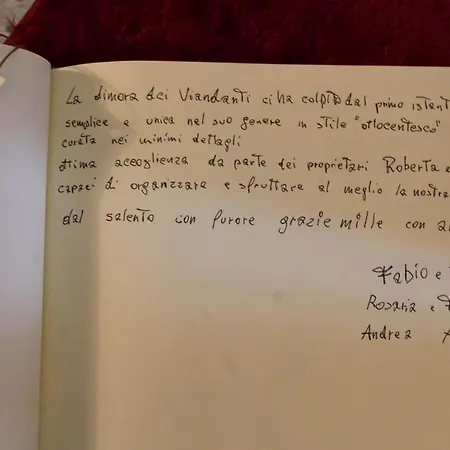 La dimora dei Viandanti ci ha colpito dal primo istant
semplice e unica nel suo genere in stile "ottocentesco"
curata nei minimi dettagli
ottima accoglienza da parte dei proprietari Roberta e
capaci di organizzare e sfruttare al meglio la nostra
dal salento con furore grazie mille con a
Fabio e
Rosaria e
Andrea